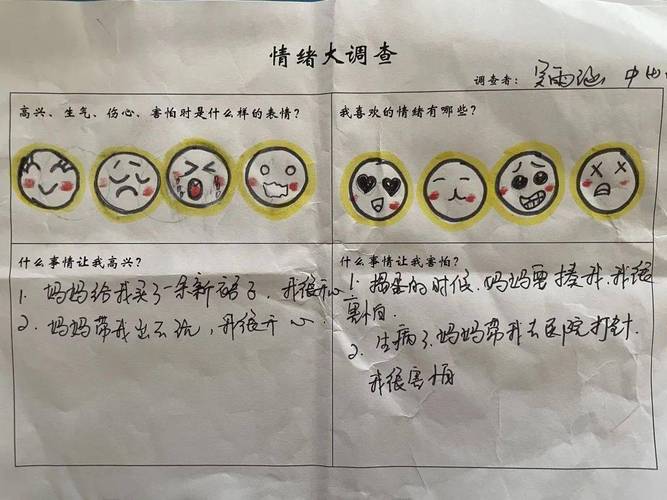 情绪大调查
调查者：
高兴、生气、伤心、害怕时是什么样的表情？
我喜欢的情绪有哪些？
什么事情让我高兴？
1. 妈妈给我买了一条新裙子，我很开心
2. 妈妈带我出去玩，我很开心
什么事情让我害怕？
1. 捣蛋的时候，妈妈要揍我，我很
害怕
2. 生病了，妈妈带我去医院打针.
我很害怕